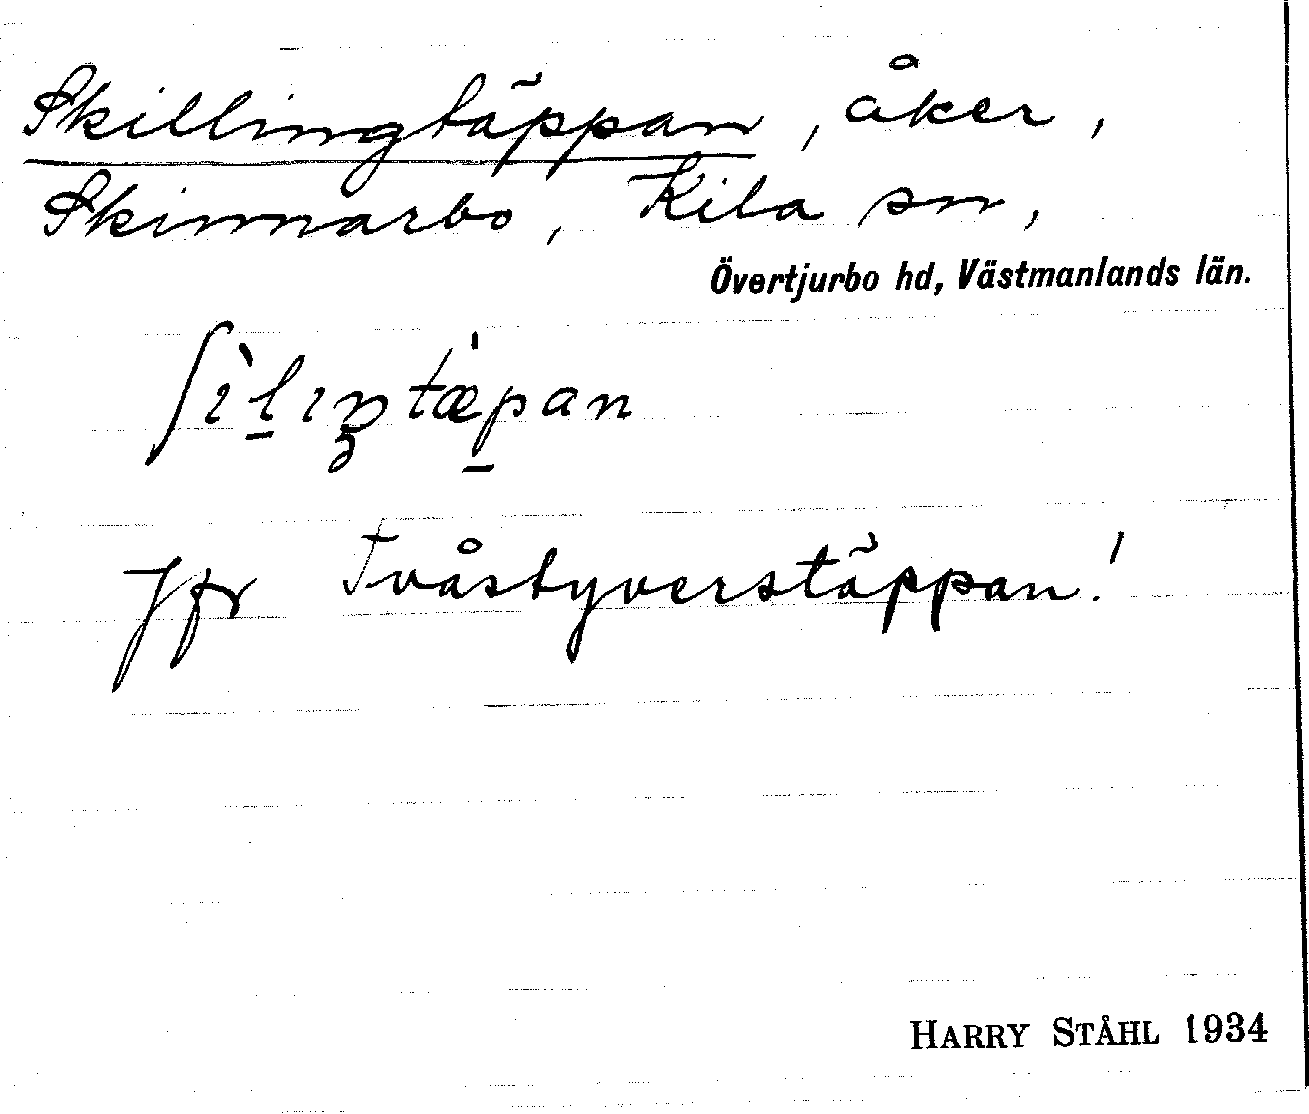 Skillingtäppan, åker,
Skinnarbo, Kila sn,
Övertjurbo hd, Västmanlands län.
ʃìl̠ıŋtæ̀p̠an
Jfr Tvåstyverstäppan!
HARRY STÅHL 1934